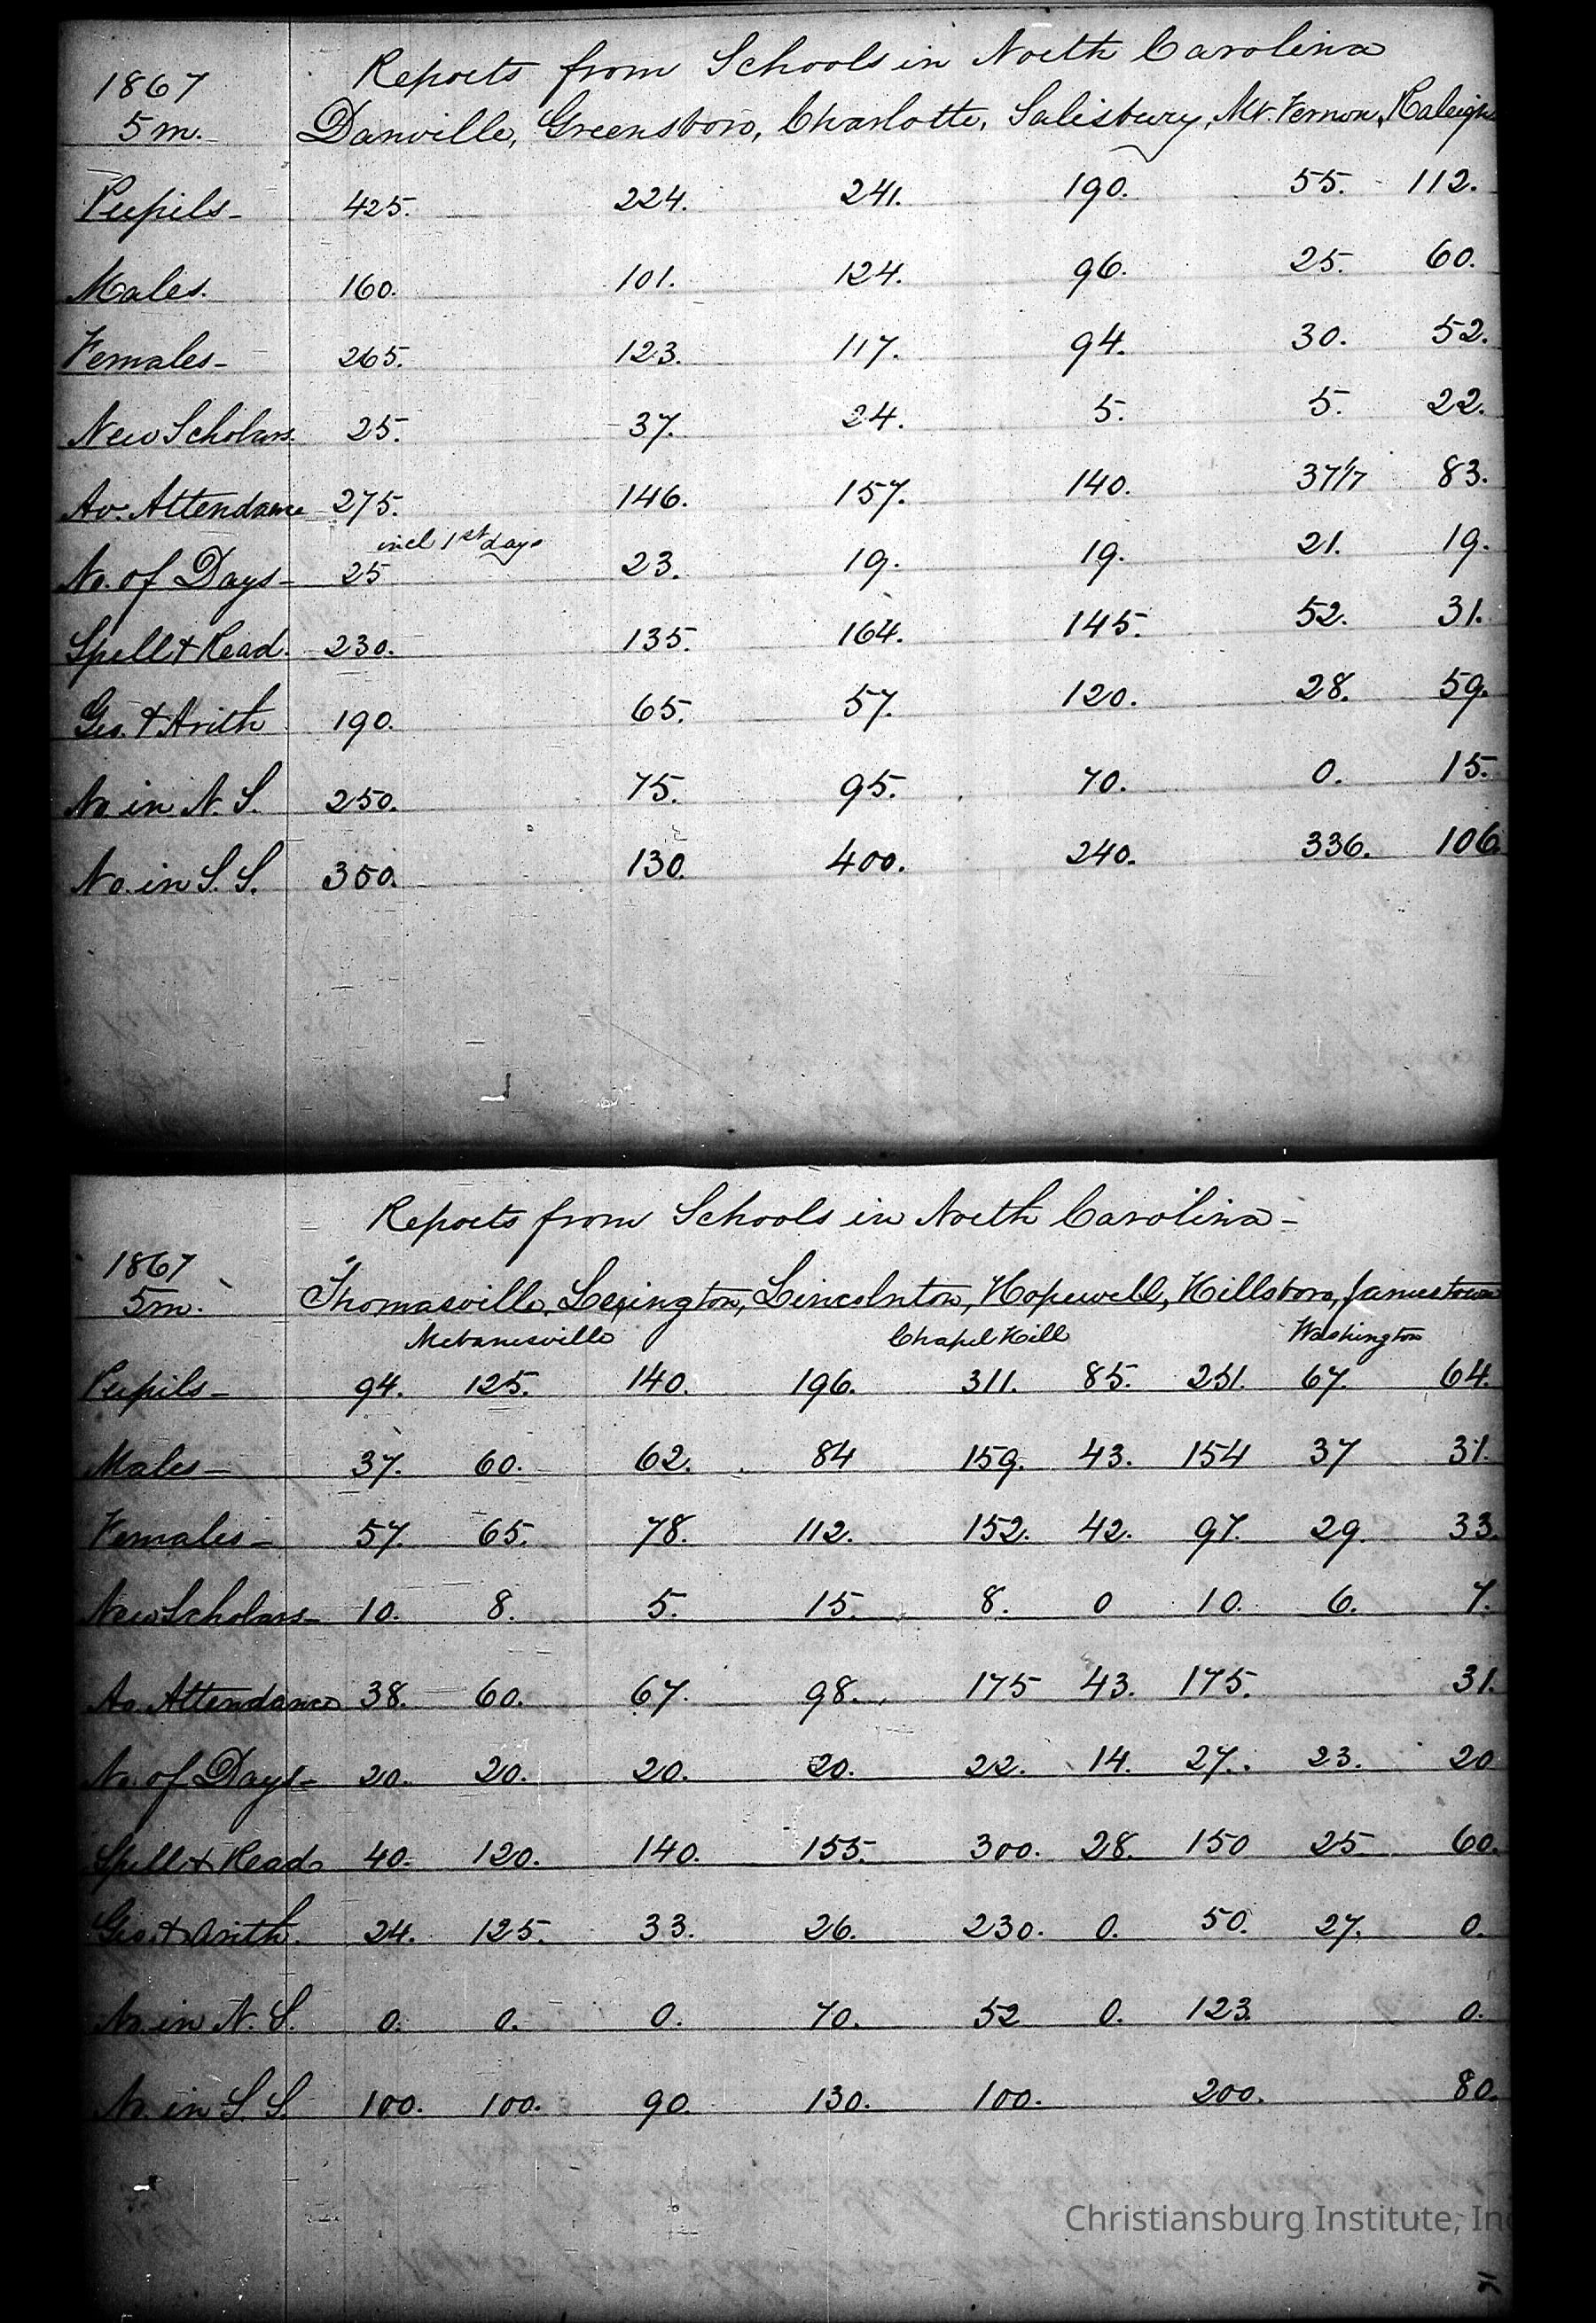 Reports from Schools in North Carolina
1867
5m. Danville, Greensboro, Charlotte, Salisbury, Mt. Vernon, Raleigh
Pupils- 425. 224. 241. 190. 55. 112.
Males. 160. 101. 124. 96. 25. 60.
Females- 265. 123. 117. 94. 30. 52.
New Scholars. 25. 37. 24. 5. 5. 22.
Av. Attendance 275. 146. 157. 140. 37 1/7 83.
incl 1st days
No. of Days- 25 23. 19. 19. 21. 19.
Spell & Read. 230. 135. 164. 145. 52. 31.
Geo. & Arith 190. 65. 57. 120. 28. 59.
No. in N. S. 250. 75. 95. 70. 0. 15.
No. in S. S. 350. 130. 400. 240. 336. 106.
Reports from Schools in North Carolina-
1867
5m. Thomasville, Lexington, Lincolnton, Hopewell, Hillsboro, Jamestown
Mebanesville Chapel Hill Washington
Pupils- 94. 125. 140. 196. 311. 85. 251. 67. 64.
Males- 37. 60. 62. 84 159. 43. 154 37 31.
Females- 57. 65. 78. 112. 152. 42. 97. 29. 33.
New Scholars- 10. 8. 5. 15. 8. 0 10. 6. 7.
Av. Attendance 38. 60. 67. 98. 175 43. 175. 31.
No. of Days- 20. 20. 20. 20. 22. 14. 27. 23. 20
Spell & Read. 40. 120. 140. 155. 300. 28. 150 25 60.
Geo. & Arith. 24. 125. 33. 26. 230. 0. 50. 27. 0.
No. in N. S. 0. 0. 0. 70. 52 0. 123. 0.
No. in S. S. 100. 100. 90. 130. 100. 200. 80.
Christiansburg Institute, Inc